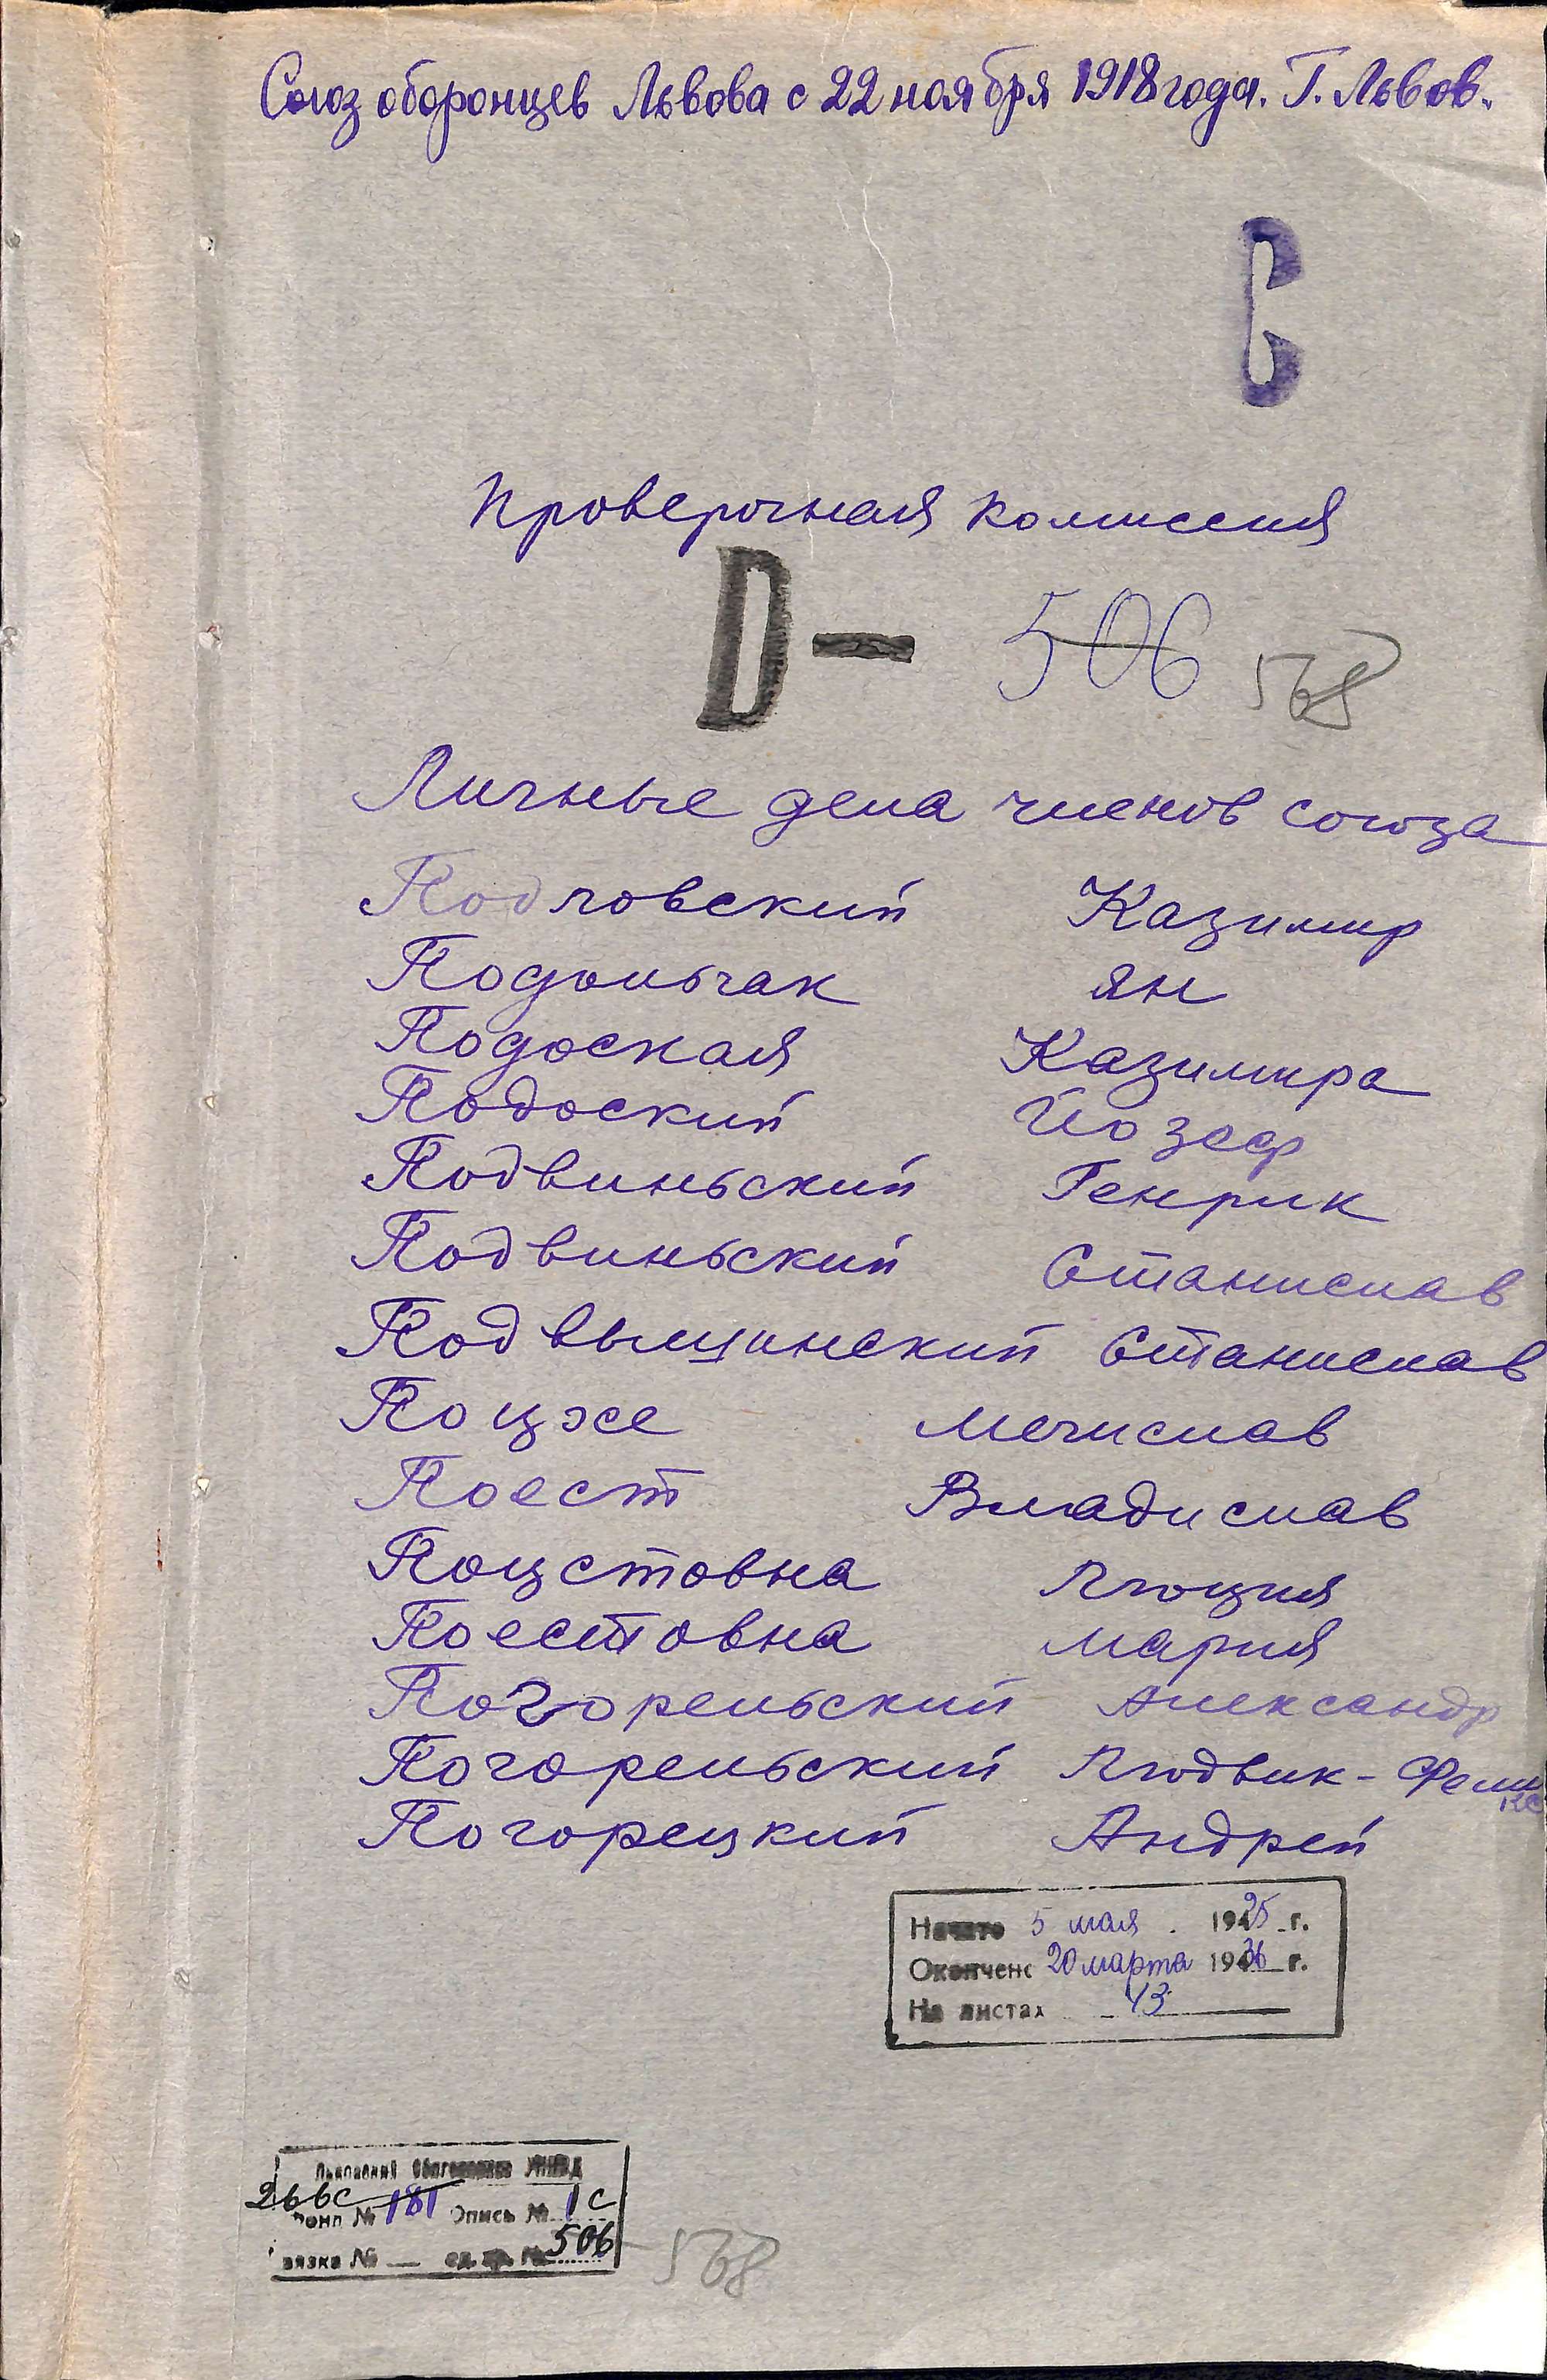 Союз оборонцев Львова с 22 ноября 1918 года. Г. Львов.
С
Проверочная комиссия
D— 506 568
Личные дела членов союза
Подловский Казимир
Подольчак Ян
Подоская Казимира
Подоский Йозеф
Подвиньский Генрик
Подвиньский Станислав
Подвышинский Станислав
Поцже Мечислав
Поест Владислав
Поцстовна Люция
Поестовна Мария
Погорельский Александр
Погорельский Людвик-Феликс
Погорецкий Андрей
Начато 5 мая 1925 г.
Окончено 20 марта 1936 г.
На листах 43
266с 181 Опись № 1с
вязка № — ед. хр. № 506 568